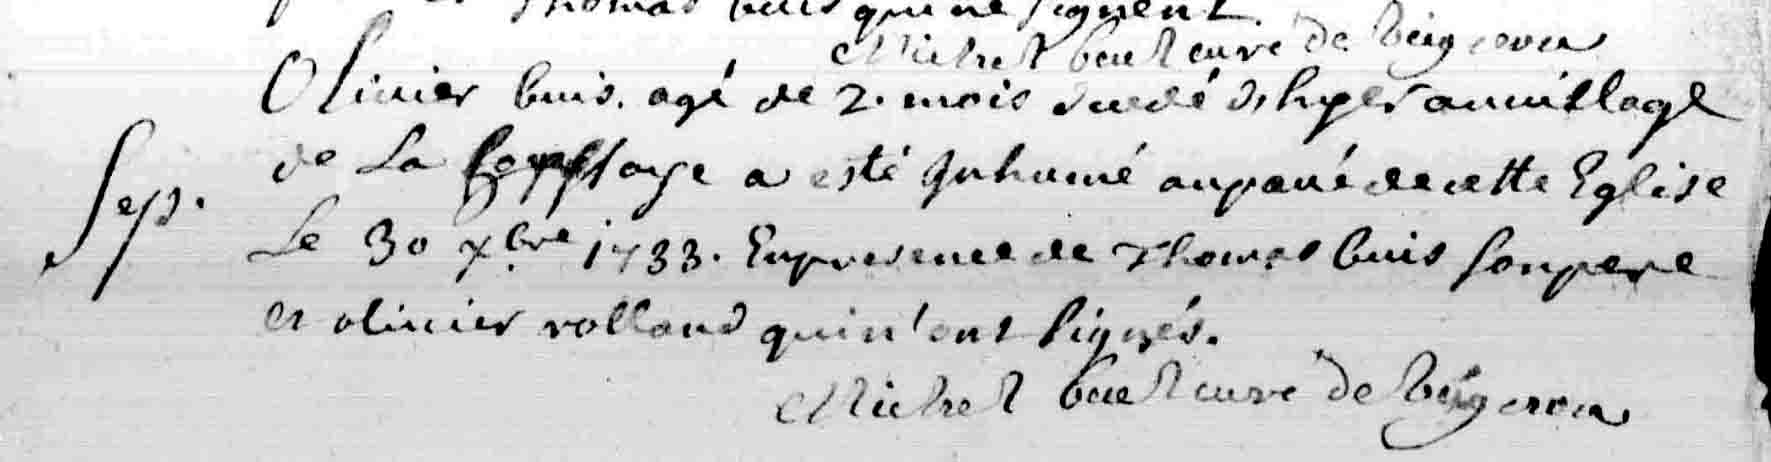 Thomas buis qui ne signent
Michel curé de
Olivier buis. agé de 2. mois decedé d'hyer au village
de La a esté Inhumé au pavé de cette Eglise
Sep. Le 30 xbre 1733. En presence de Thomas buis son pere
et olivier rolland qui n'ont signés.
Michel curé de